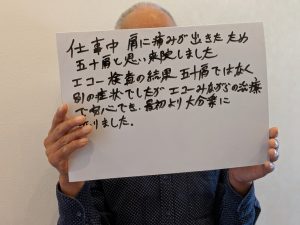 仕事中 肩に痛みが出きた ため
五十肩と思い来院しました
エコー検査の結果 五十肩ではなく
別の症状でしたが エコーみながらの治療
で安心でき、最初より大分楽に
なりました。